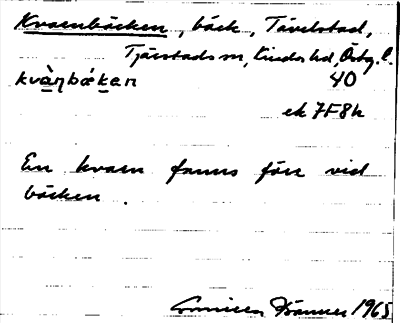 Kvarnbäcken, bäck, Tävelstad,
Tjärstads sn, Kinda hd, Östg. l.
kvàɳbǽkən 40
ek 7F8h
En kvarn fanns förr vid
bäcken.
1965